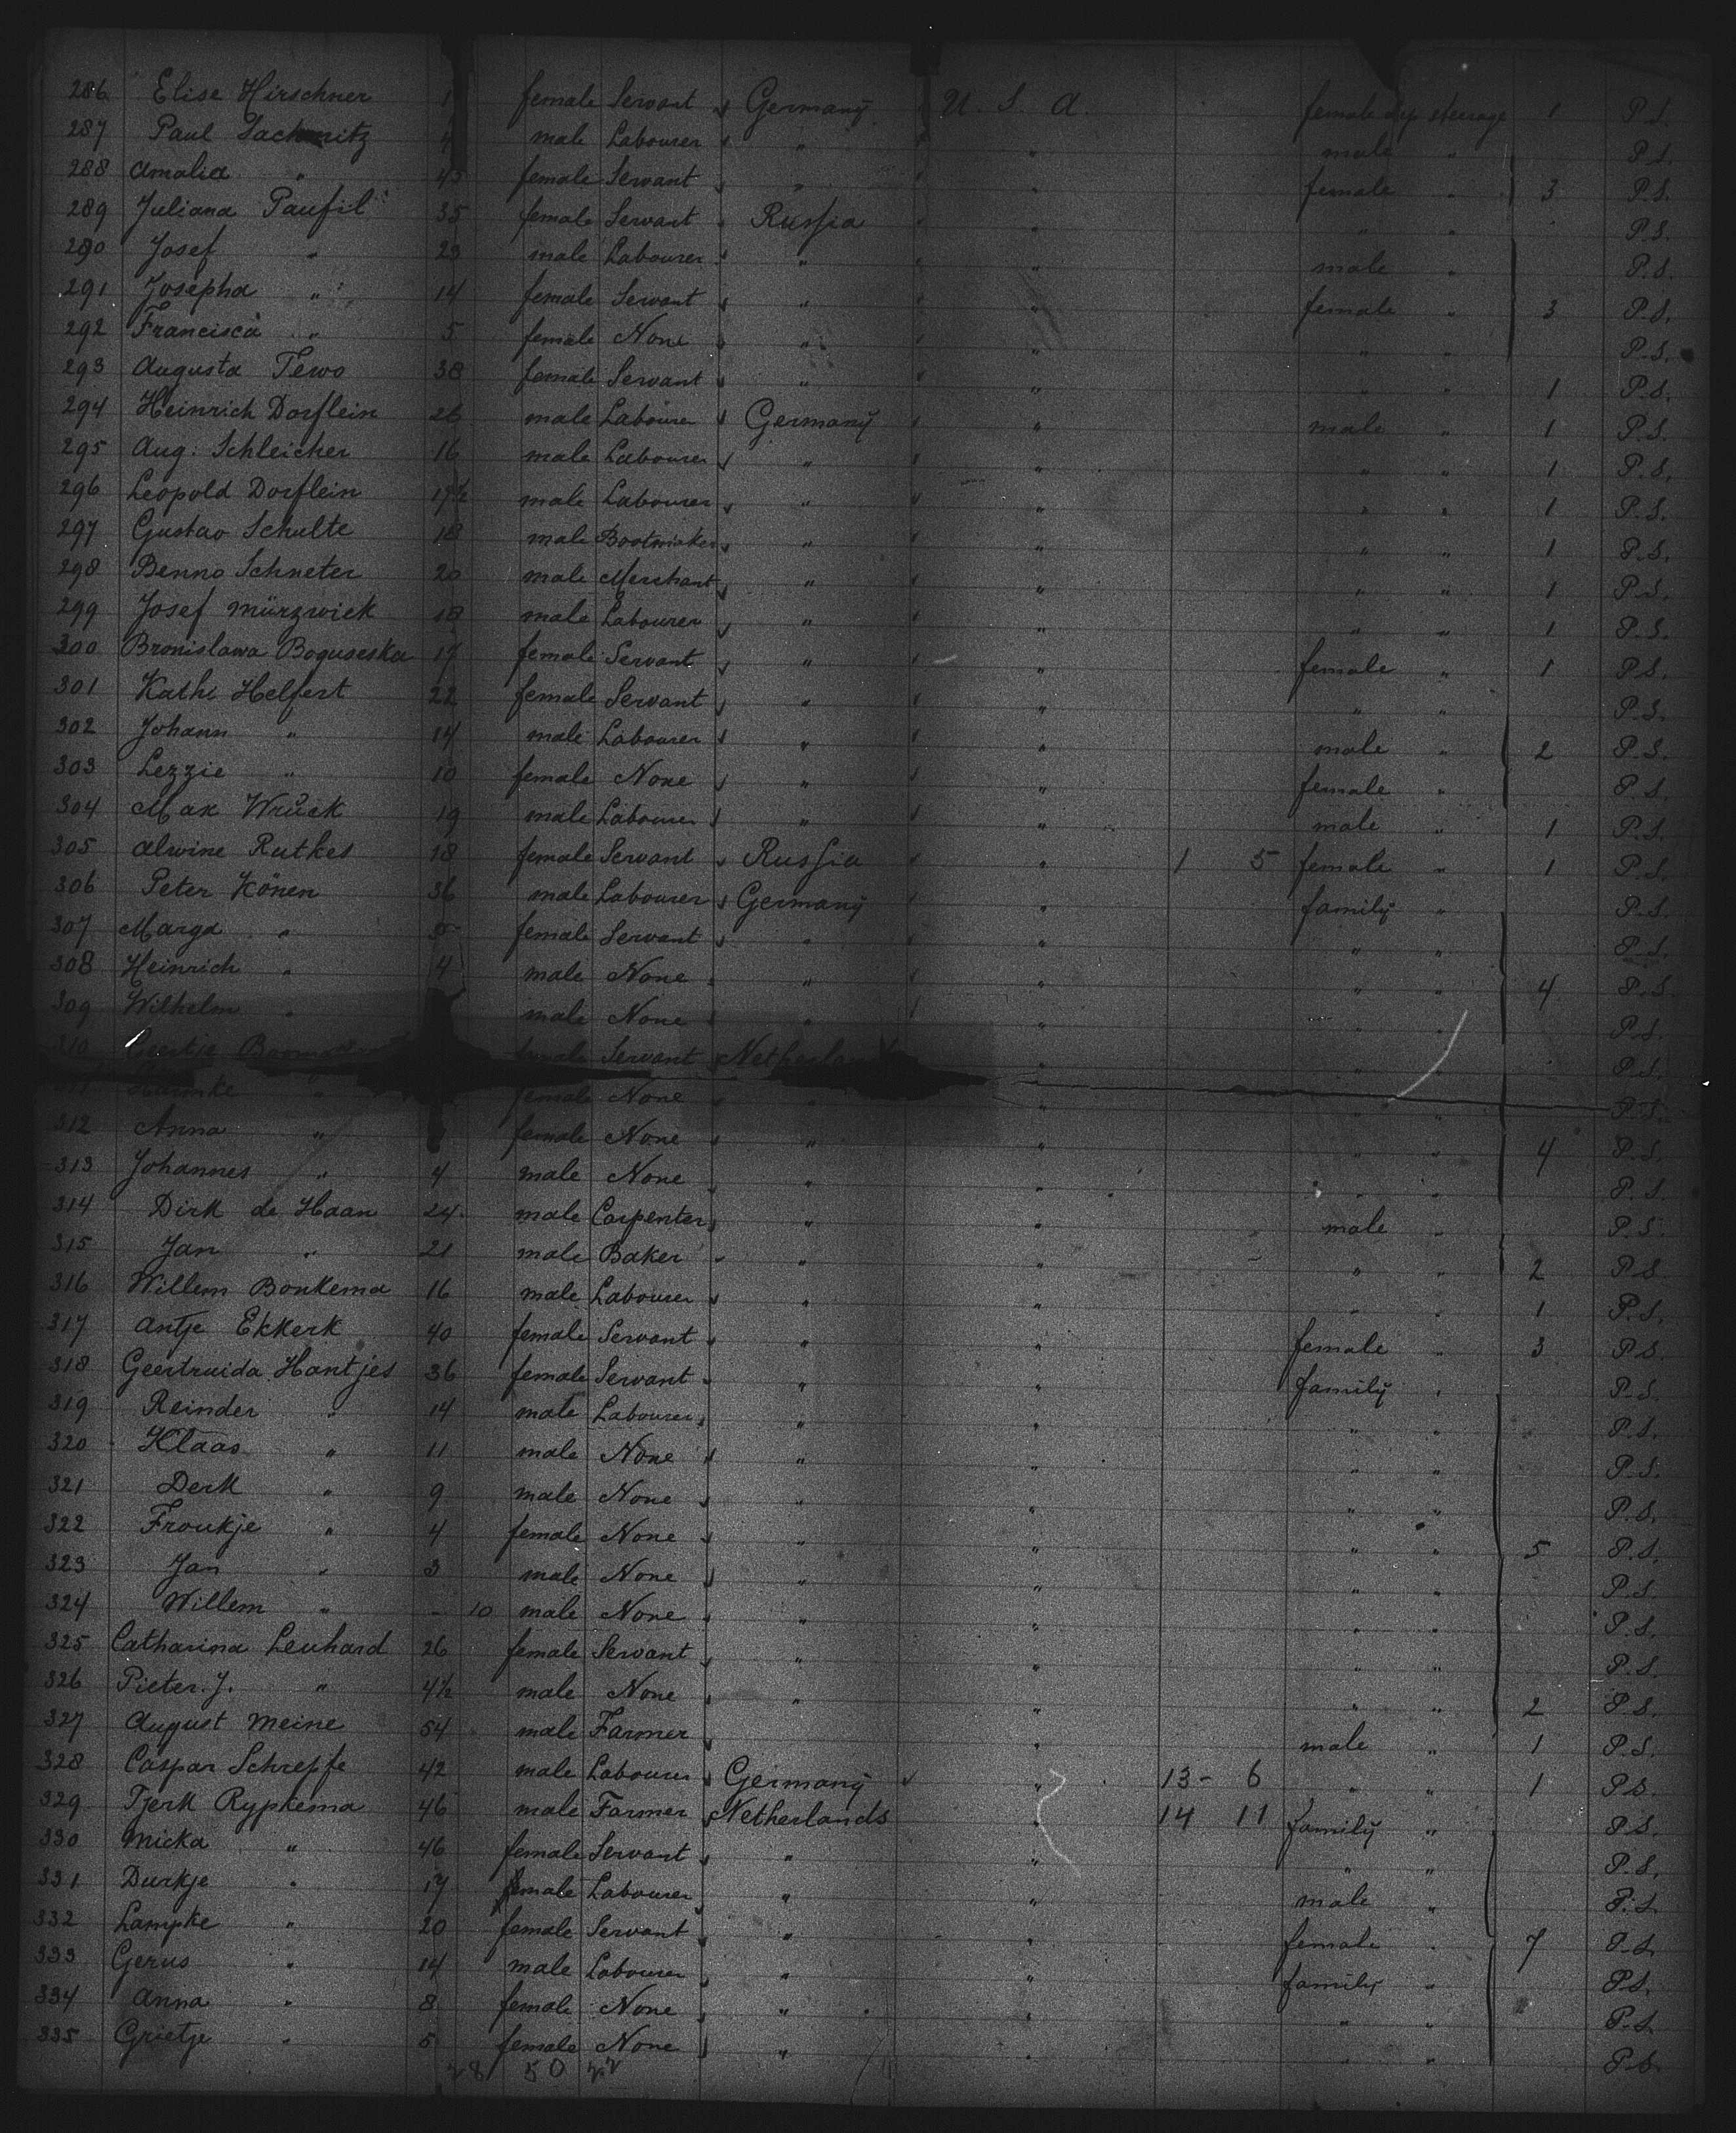 286 Elise Hirschner 1 female Servant Germany U. S. A. female steerage 1 P.S.
287 Paul male Labourer " " male " P.S.
288 Amalia " 45 female Servant " " female " 3 P.S.
289 Juliana Paufil 35 female Servant Russia " " " P.S.
290 Josef " 23 male Labourer " " male " P.S.
291 Josepha " 14 female Servant " " female " 3 P.S.
292 Francisca " 5 female None " " " " P.S.
293 Augusta Tewo 38 female Servant " " " " 1 P.S.
294 Heinrich Dorflein 26 male Labourer Germany " male " 1 P.S.
295 Aug. Schleicher 16 male Labourer " " " " 1 P.S.
296 Leopold Dorflein 17½ male Labourer " " " " 1 P.S.
297 Gustav Schulte 18 male Bootmaker " " " " 1 P.S.
298 Benno Schneter 20 male Merchant " " " " 1 P.S.
299 Josef Mürzwick 18 male Labourer " " " " 1 P.S.
300 Bronislawa Boguseska 17 female Servant " " female " 1 P.S.
301 Kathi Helfert 22 female Servant " " " " P.S.
302 Johann " 14 male Labourer " " male " 2 P.S.
303 Lezzie " 10 female None " " female " P.S.
304 Max Wrück 19 male Labourer " " male " 1 P.S.
305 Alwine Rutkes 18 female Servant Russia " 1 5 female " 1 P.S.
306 Peter Könen 36 male Labourer Germany " family " P.S.
307 Marga " female Servant " " " " P.S.
308 Heinrich " 4 male None " " " " 4 P.S.
309 Wilhelm " male None " " " " P.S.
310 Geertje Servant Netherlands " " " P.S.
female None " " " " P.S.
312 Anna " female None " " " " 4 P.S.
313 Johannes " 4 male None " " " " P.S.
314 Dirk de Haan 24 male Carpenter " " male " P.S.
315 Jan " 21 male Baker " " " " 2 P.S.
316 Willem Bonkema 16 male Labourer " " " " 1 P.S.
317 Antje Ekkerk 40 female Servant " " female " 3 P.S.
318 Geertruida Hantjes 36 female Servant " " family " P.S.
319 Reinder " 14 male Labourer " " " " P.S.
320 Klaas " 11 male None " " " " P.S.
321 Derk " 9 male None " " " " P.S.
322 Froukje " 4 female None " " " " 5 P.S.
323 Jan " 3 male None " " " " P.S.
324 Willem " - 10 male None " " " " P.S.
325 Catharina Leuhard 26 female Servant " " " " P.S.
326 Pieter. J. " 4½ male None " " " " 2 P.S.
327 August Meine 54 male Farmer " male " 1 P.S.
328 Caspar Schrepfe 42 male Labourer Germany " 13 - 6 " " 1 P.S.
329 Tjerk Rypkema 46 male Farmer Netherlands " 14 11 family " P.S.
330 Micka " 46 female Servant " " " " P.S.
331 Durkje " 17 male Labourer " " male " P.S.
332 Lampke " 20 female Servant " " female " 7 P.S.
333 Gerus " 14 male Labourer " " family " P.S.
334 Anna " 8 female None " " " " P.S.
335 Grietje " 5 female None " " " " P.S.
28 50 22